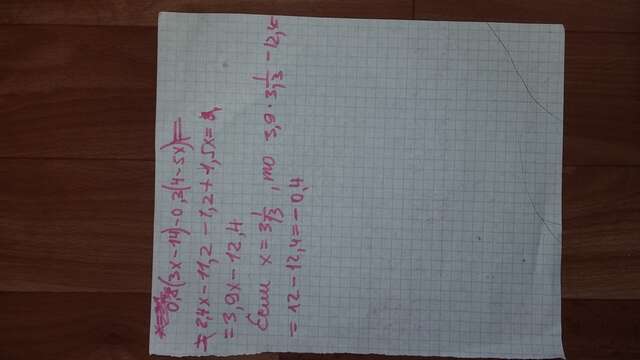 0,8(3x-14)-0,3(4-5x)=
=2,4x-11,2-1,2+1,5x=
=3,9x-12,4
Если x=3 1/13, то 3,9·3 1/13-12,4=
=12-12,4=-0,4